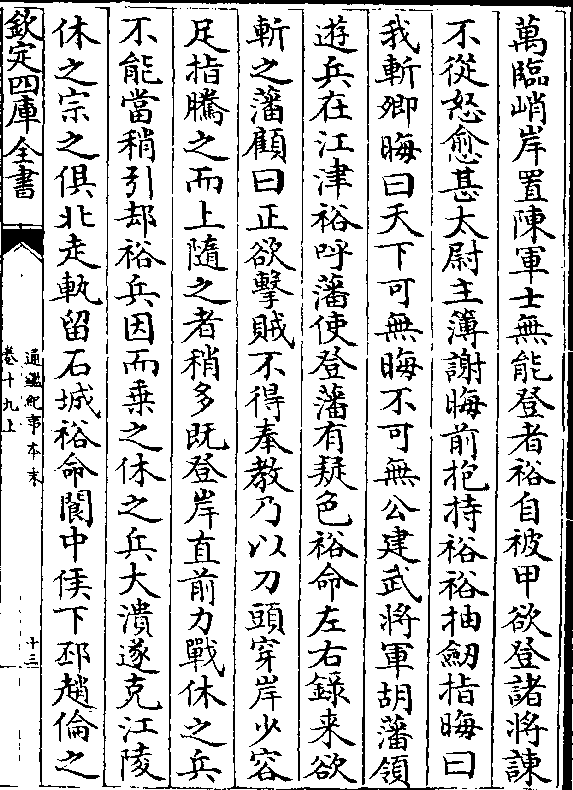 萬臨峭岸置陳軍士無能登者裕自被甲欲登諸將諫
不從怒愈甚太尉主簿謝晦前抱持裕裕抽劒指晦曰
我斬卿晦曰天下可無晦不可無公建武將軍胡藩領
遊兵在江津裕呼藩使登藩有疑色裕命左右錄来欲
斬之藩顧曰正欲擊賊不得奉教乃以刀頭穿岸少容
足指騰之而上隨之者稍多既登岸直前力戰休之兵
不能當稍引却裕兵因而乗之休之兵大潰遂克江陵
休之宗之俱北走軌留石城裕命閬中侯下邳趙倫之
欽定四庫全書
通鑑紀事本末
卷十九上
十三